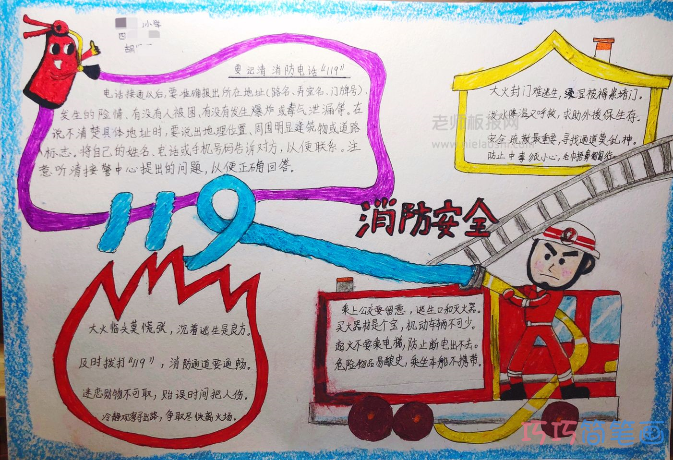 小学
四
要记清消防电话“119”
电话接通以后,要准确报出所在地址(路名、弄室名、门牌号)、
发生的险情、有没有人被困、有没有发生爆炸或毒气泄漏等。在
说不清楚具体地址时,要说出地理位置、周围明显建筑物或道路
标志。将自己的姓名、电话或手机号码告诉对方,以便联系。注
意听清接警中心提出的问题,以便正确回答。
大火封门难逃生,湿被褥来堵门。
泼水降温又呼救,求助外援保生存。
安全疏散最重要,寻找通道莫乱神。
防止中毒
老师板报网
119
消防安全
大火临头莫慌张,沉着逃生是良方。
及时拨打“119”,消防通道要通畅。
迷恋财物不可取,贻误时间把人伤。
冷静观察寻出路,争取尽快离火场。
乘上公交要留意,逃生口和灭火器。
灭火器材是个宝,机动车辆不可少。
起火不要乘电梯,防止断电出不去。
危险物品易酿灾,乘坐车船不携带。
巧巧简笔画